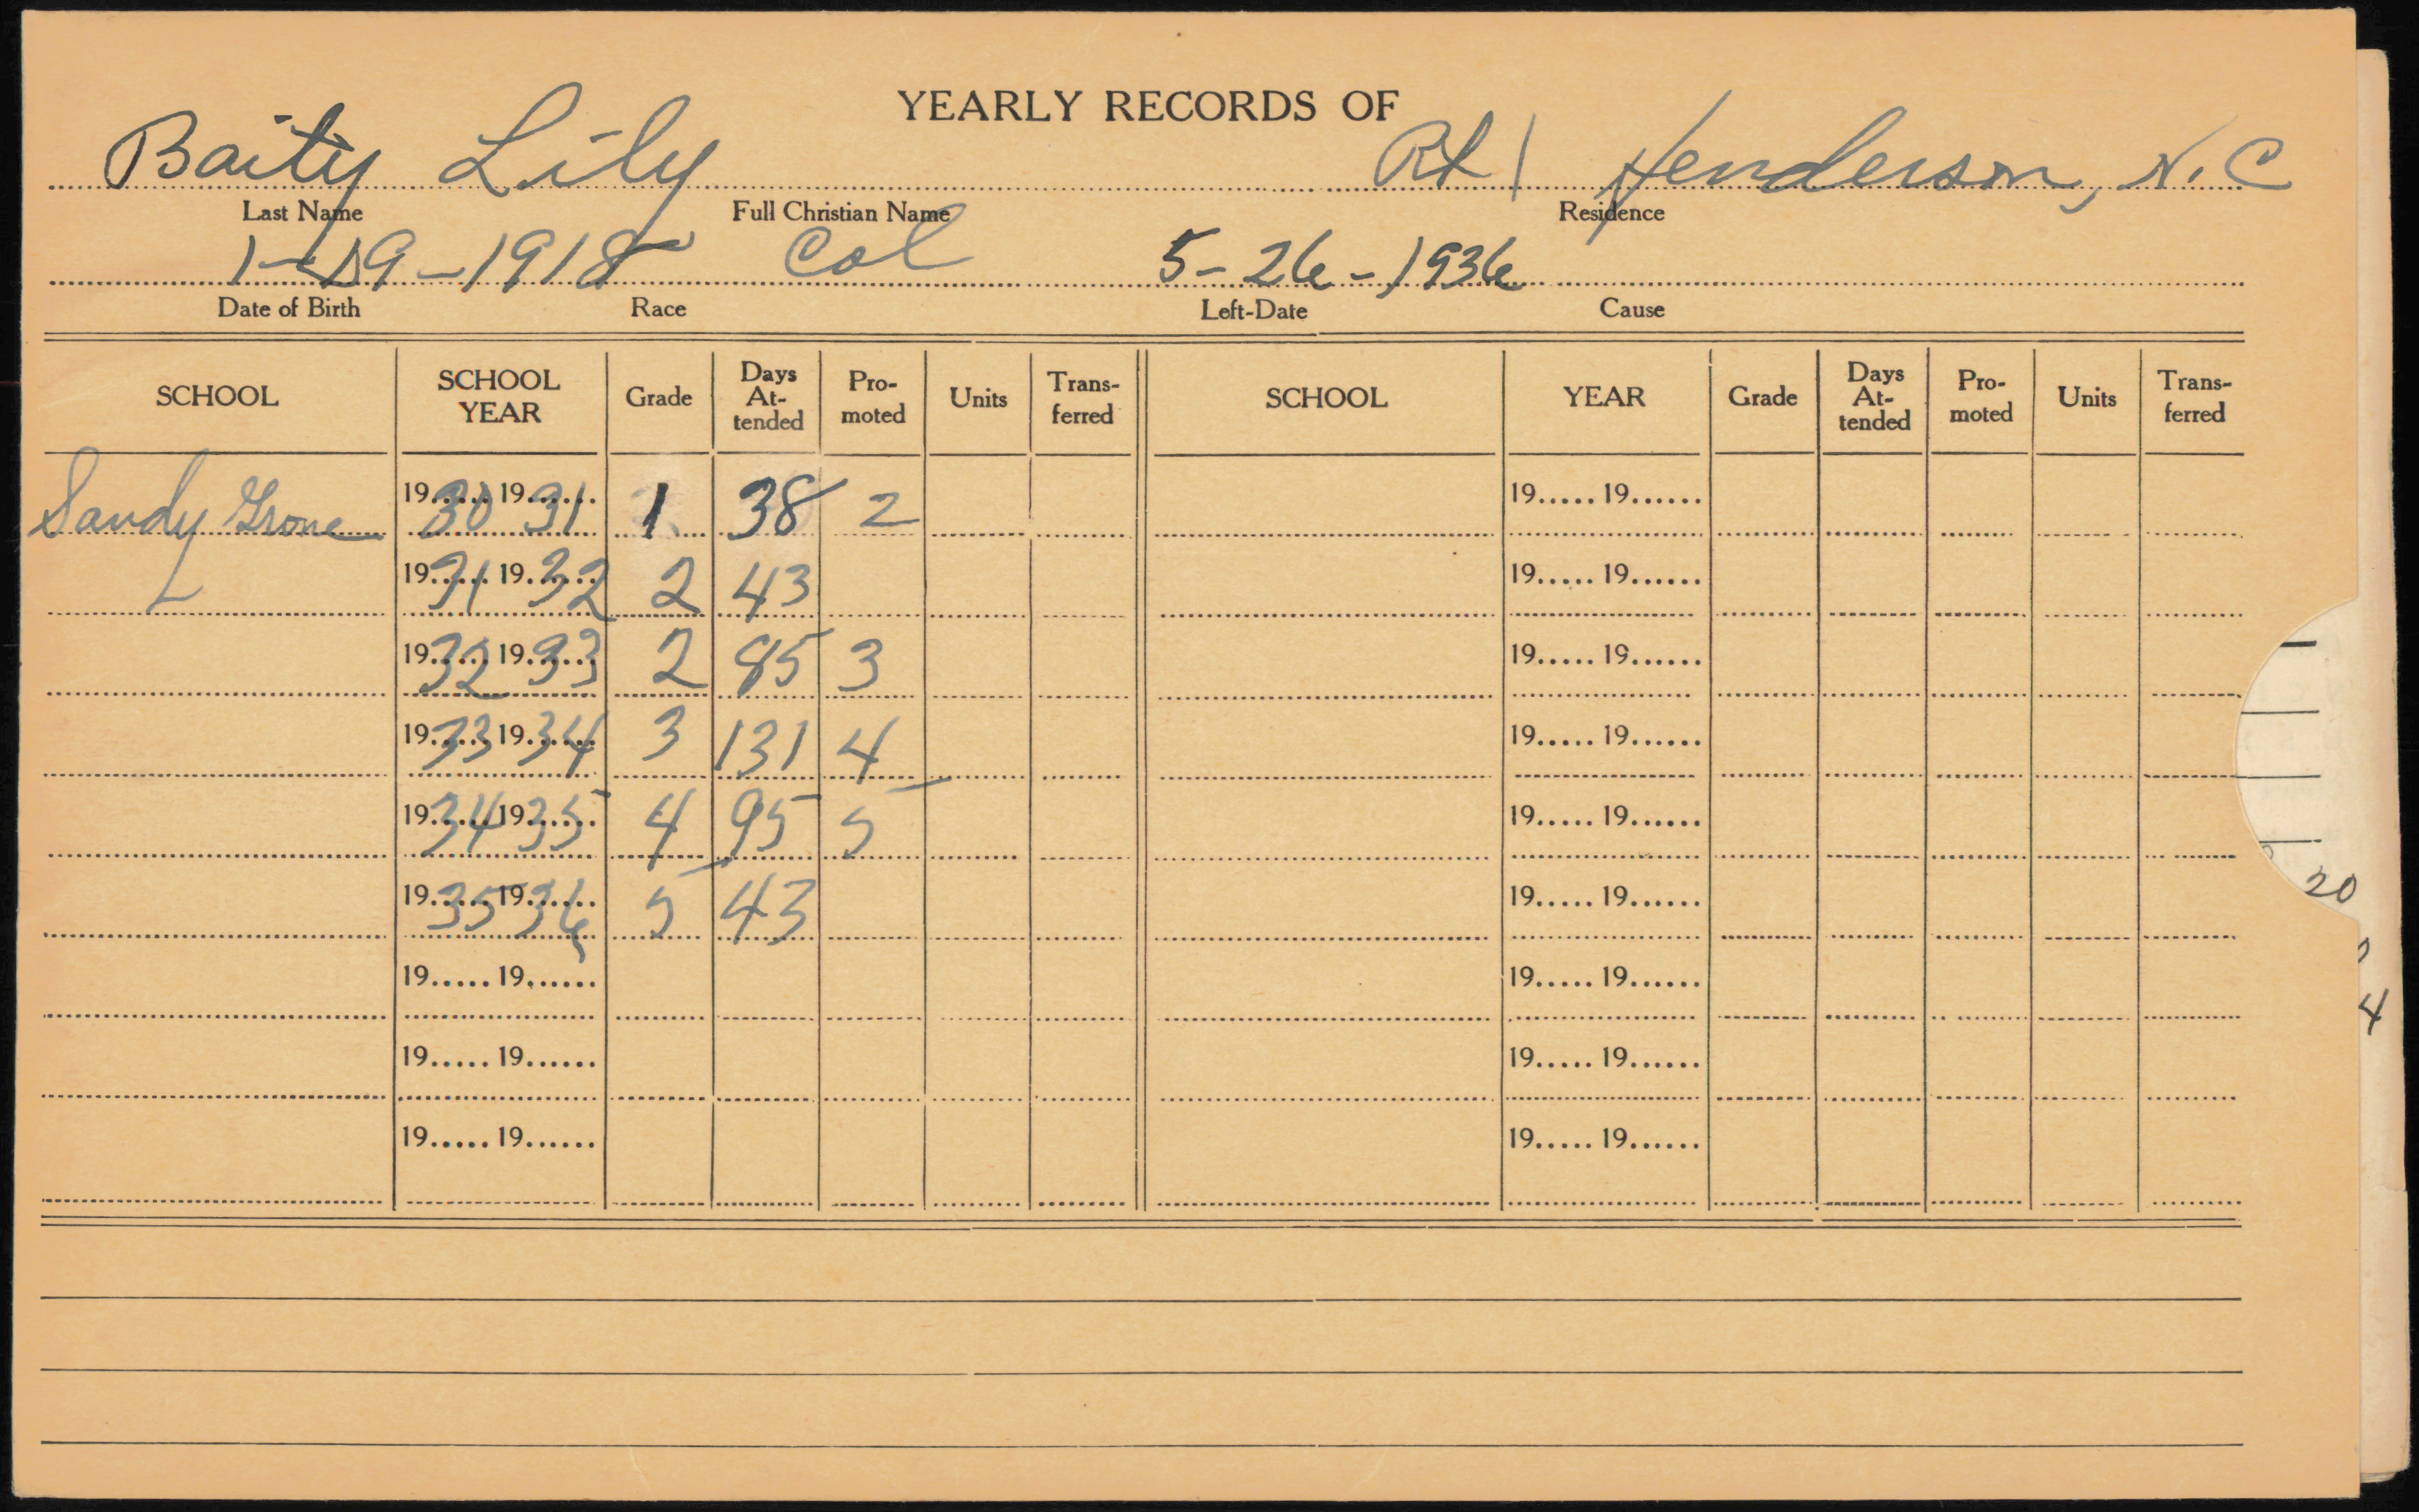 YEARLY RECORDS OF
Baity Lily Rt 1 Henderson, N.C
Last Name Full Christian Name Residence
1-19-1918 Col 5-26-1936
Date of Birth Race Left-Date Cause
SCHOOL SCHOOL YEAR Grade Days At-tended Pro-moted Units Trans-ferred SCHOOL YEAR Grade Days At-tended Pro-moted Units Trans-ferred
Sandy Grove 1930 1931 1 38 2 19..... 19......
1931 1932 2 43 19..... 19......
1932 1933 2 85 3 19..... 19......
1933 1934 3 131 4 19..... 19......
1934 1935 4 95 5 19..... 19......
1935 1936 5 43 19..... 19......
19..... 19...... 19..... 19......
19..... 19...... 19..... 19......
19..... 19...... 19..... 19......
20
4